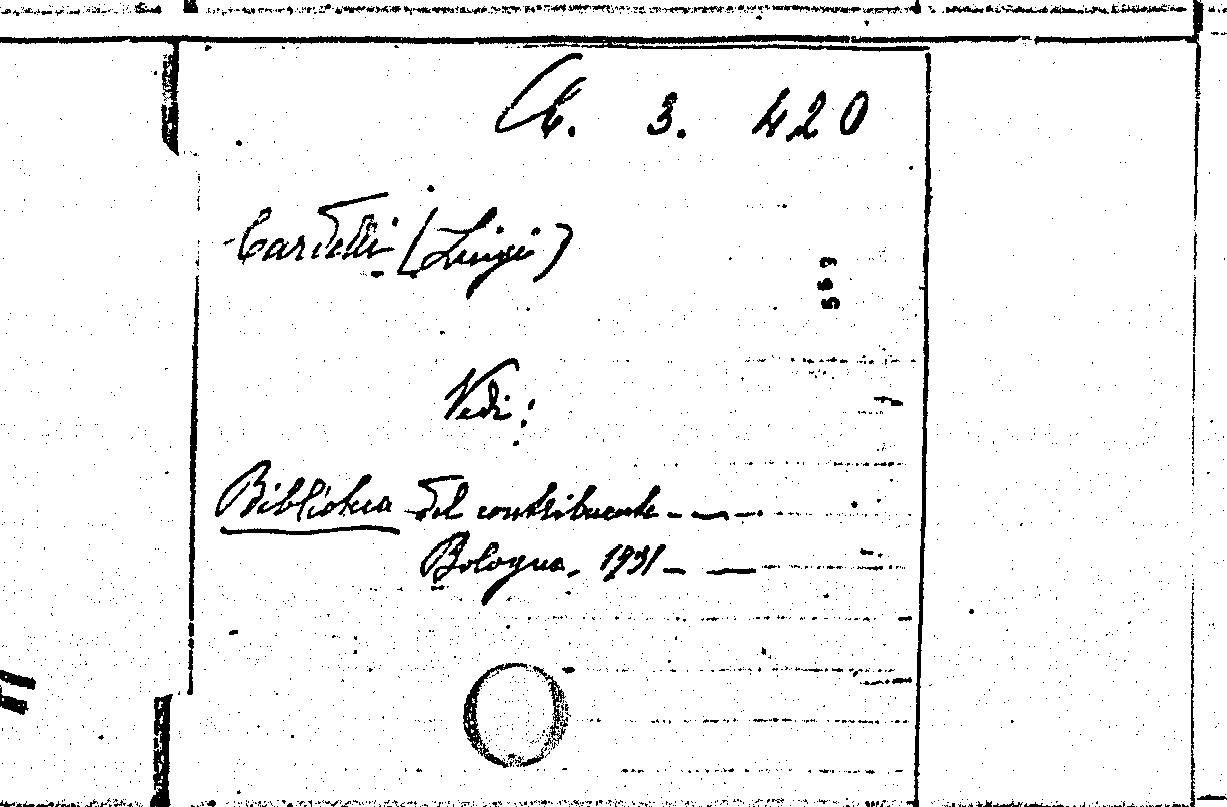 C. 3. 420
Cardelli (Luigi)
559
Vedi:
Biblioteca del contribuente - — -
Bologna. 1931 - —